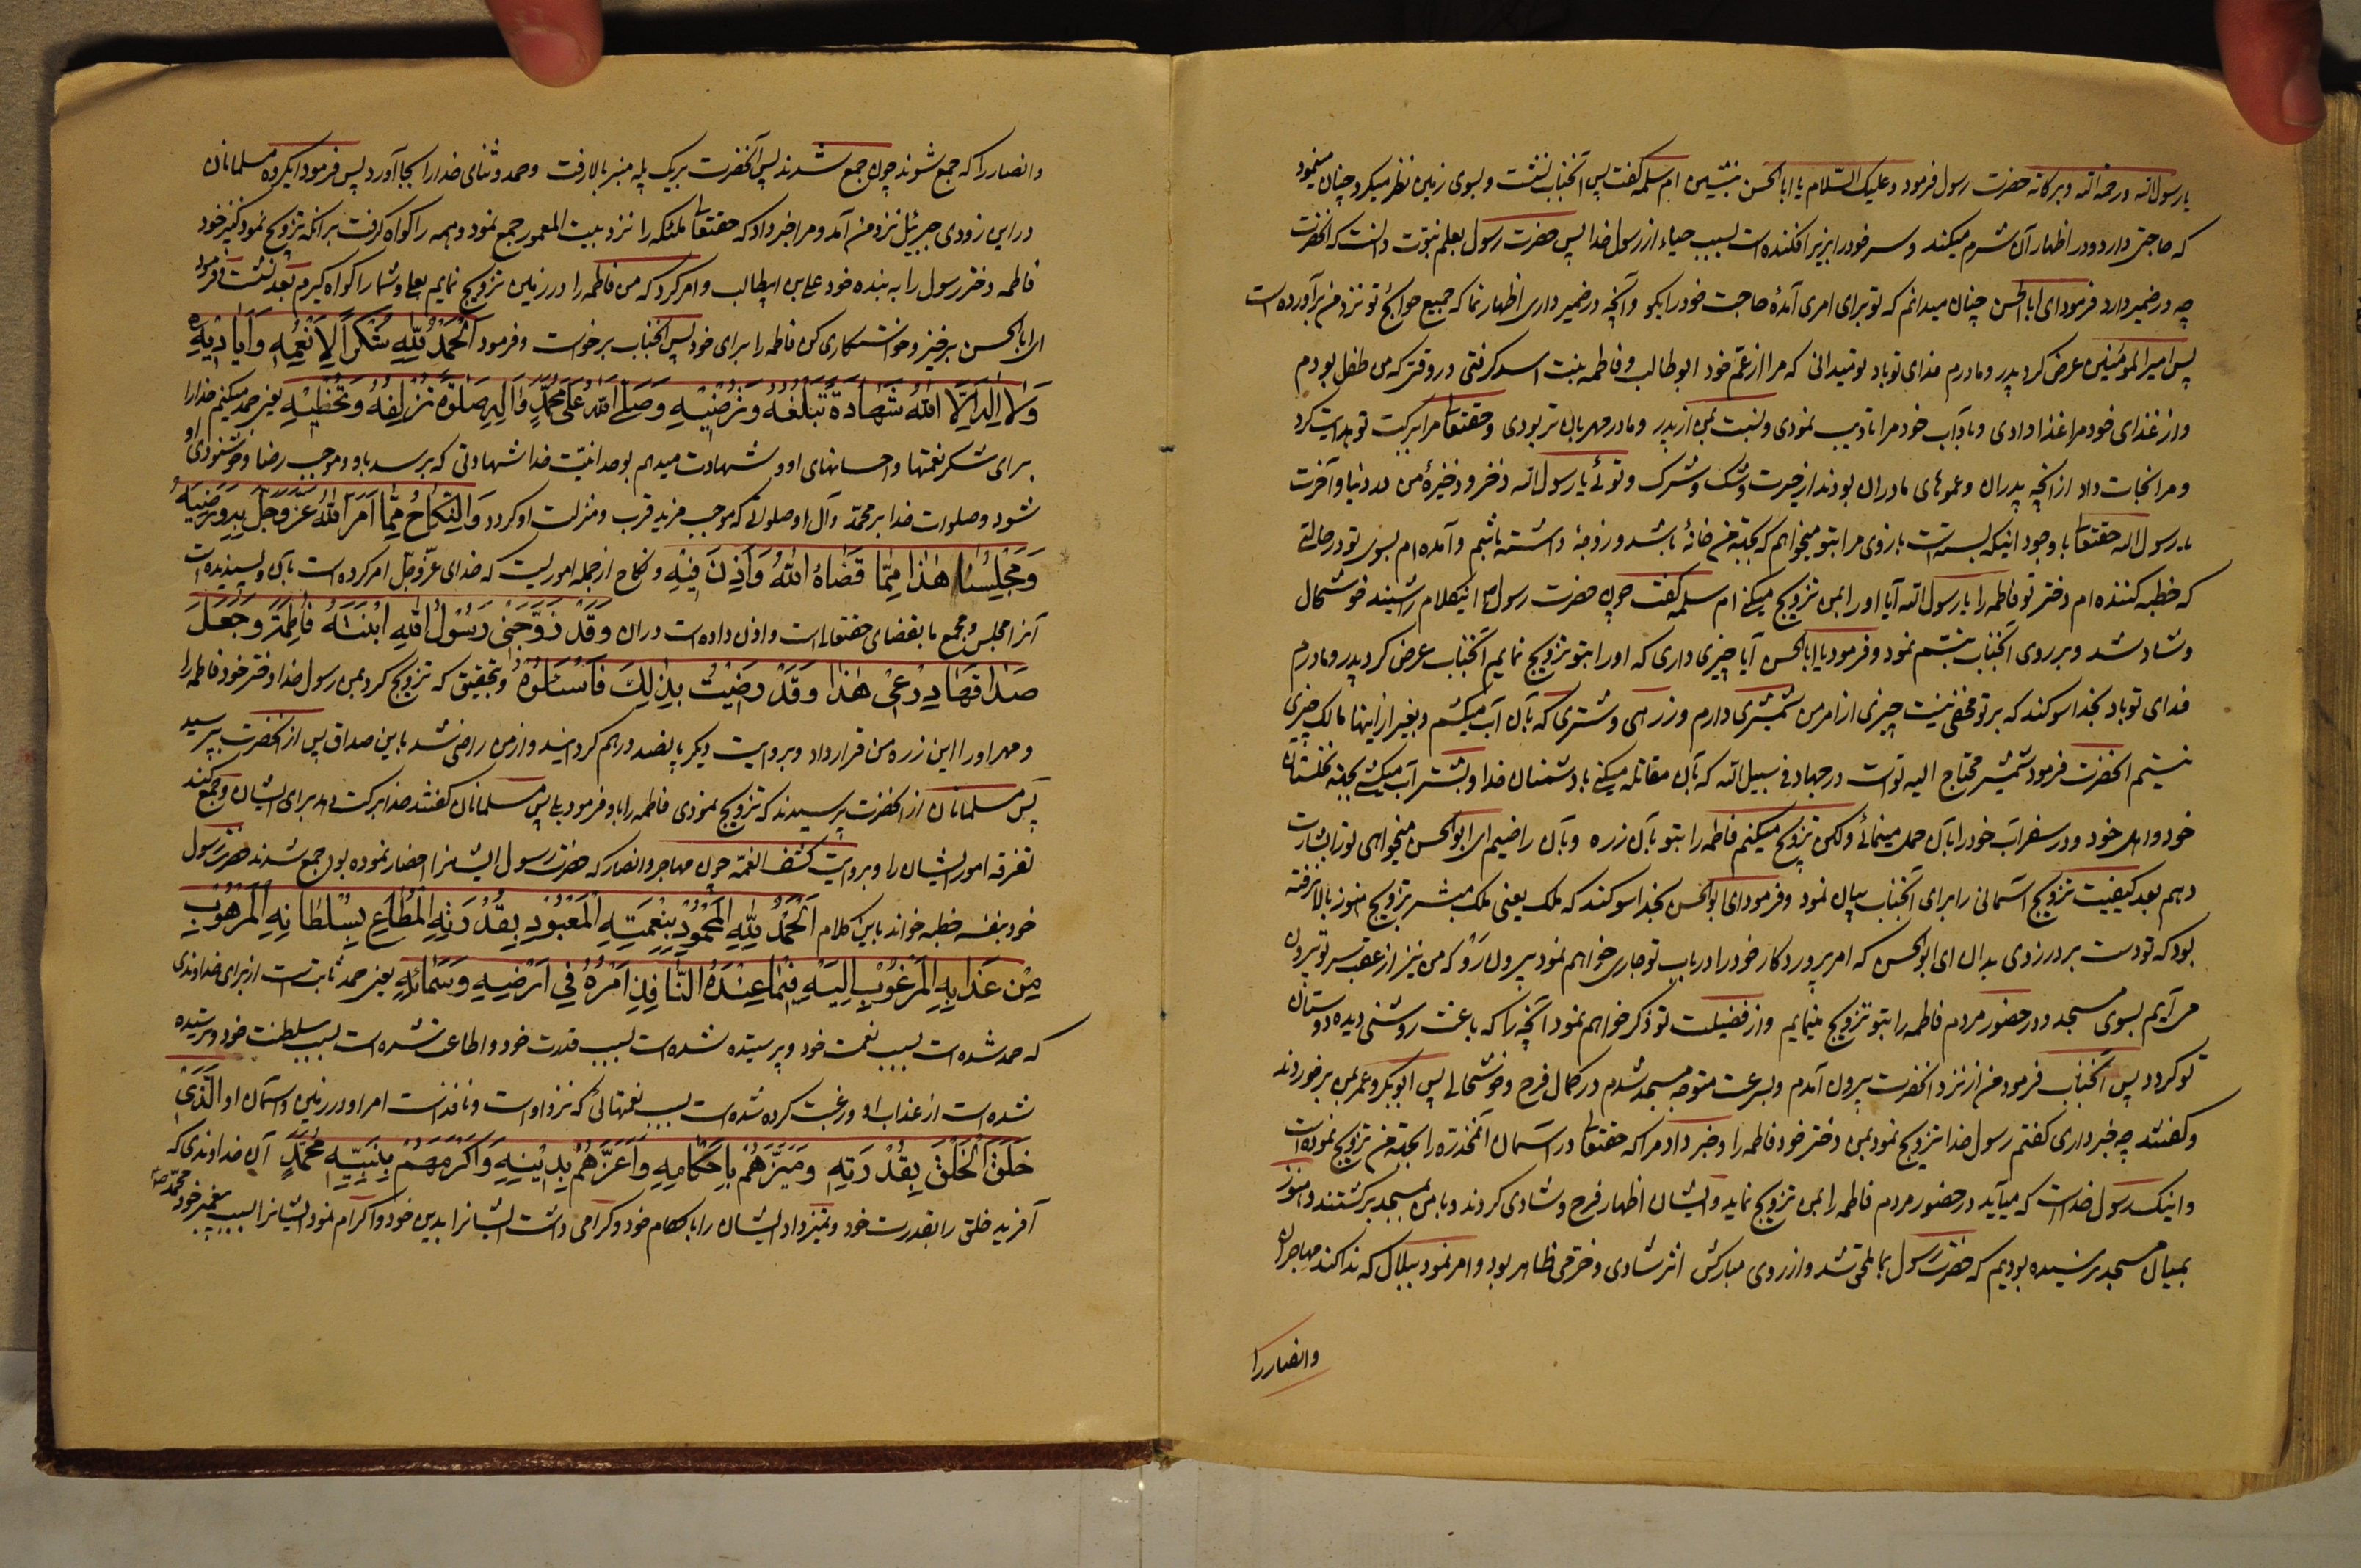 یا رسول الله ورحمة الله وبرکاته حضرت رسول فرمود وعلیک السلام یا ابا الحسن بنشین ام سلمه گفت پس آنجناب نشست و بسوی زمین نظر میکرد چنان مینمود
که حاجتی دارد و در اظهار آن شرم میکند و سر خود را بزیر افکنده است بسبب حیاء از رسول خدا پس حضرت رسول بعلم نبوت دانست که آنحضرت
چه در ضمیر دارد فرمود ای ابا الحسن چنان میدانم که تو برای امری آمدهٔ حاجت خود را بگو و آنچه در ضمیر داری اظهار نما که جمیع حوائج تو نزد من برآورده است
پس امیر المؤمنین عرض کرد پدر و مادرم فدای تو باد تو میدانی که مرا از عم خود ابو طالب و فاطمه بنت اسد گرفتی در وقتی که من طفل بودم
و از غذای خود مرا غذا دادی و بآداب خود مرا تادیب نمودی و نسبت بمن از پدر و مادر مهربان تر بودی و حقتعالی مرا ببرکت تو هدایت کرد
و مرا نجات داد از آنچه پدران و عموهای مادران بودند از حیرت و شک و شرک و توئی یا رسول الله ذخر و ذخیرهٔ من در دنیا و آخرت
یا رسول الله حقتعالی با وجود اینکه بسته است بازوی مرا بتو میخواهم که بجهة من خانهٔ باشد و زوجهٔ داشته باشم و آمده ام بسوی تو در حالتی
که خطبه کننده ام دختر تو فاطمه را یا رسول الله آیا او را بمن تزویج میکنی ام سلمه گفت چون حضرت رسول اینکلام را شنید خوشحال
و شاد شد و بر روی آنجناب تبسم نمود و فرمود یا ابا الحسن آیا چیزی داری که او را بتو تزویج نمایم آنجناب عرض کرد پدر و مادرم
فدای تو باد بخدا سوگند که بر تو مخفی نیست چیزی از امر من شمشیری دارم و زرهی و شتری که بآن آب میکشم و بغیر از اینها مالک چیزی
نیستم آنحضرت فرمود شمشیر محتاج الیه تو است در جهاد فی سبیل الله که بآن مقاتله میکنی با دشمنان خدا و بشتر آب میکشی بجهة نخلستان
خود و اهل خود و در سفر اسباب خود را بآن حمل مینمائی ولکن تزویج میکنم فاطمه را بتو بآن زره و بآن راضیم ای ابو الحسن میخواهی تو را بشارت
دهم بعد کیفیت تزویج آسمانی را برای آنجناب بیان نمود و فرمود ای ابو الحسن بخدا سوگند که ملک یعنی ملک مبشر تزویج هنوز بالا نرفته
بود که تو دست بر در زدی بدان ای ابو الحسن که امر پروردگار خود را در باب تو جاری خواهم نمود بیرون رو که من نیز از عقب سر تو بیرون
می آیم بسوی مسجد و در حضور مردم فاطمه را بتو تزویج مینمایم و از فضیلت تو ذکر خواهم نمود آنچه را که باعث روشنی دیده دوستان
تو گردد پس آنجناب فرمود من از نزد آنحضرت بیرون آمدم و بسرعت متوجه مسجد شدم در کمال فرح و خوشحالی پس ابو بکر و عمر بمن برخوردند
و گفتند چه خبر داری گفتم رسول خدا تزویج نمود بمن دختر خود فاطمه را و خبر داد مرا که حقتعالی در آسمان آنمخدره را بجهة من تزویج نموده است
و اینک رسول خداست که میآید در حضور مردم فاطمه را بمن تزویج نماید و ایشان اظهار فرح و شادی کردند و با من بمسجد برگشتند و هنوز
بمیان مسجد نرسیده بودیم که حضرت رسول بما ملحق شد و از روی مبارکش اثر شادی و خرمی ظاهر بود و امر نمود ببلال که ندا کند مهاجران
وانصار را
وانصار را که جمع شوند چون جمع شدند پس آنحضرت بر یک پله منبر بالا رفت و حمد و ثنای خدا را بجا آورد پس فرمود ای گروه مسلمانان
در این زودی جبرئیل نزد من آمد و مرا خبر داد که حقتعالی ملئکه را نزد بیت المعمور جمع نمود و همه را گواه گرفت بر آنکه تزویج نمود کنیز خود
فاطمه دختر رسول را به بنده خود علی بن ابیطالب و امر کرد که من فاطمه را در زمین تزویج نمایم بعلی و شما را گواه گیرم بعد نشست و فرمود
ای ابا الحسن برخیز و خواستگاری کن فاطمه را برای خود پس آنجناب برخواست و فرمود اَلْحَمْدُ لِلّٰهِ شُكْرًا لِاَنْعُمِهِ وَاَيَادِيْهِ
وَلَا اِلٰهَ اِلَّا اللّٰهُ شَهَادَةً تَبْلُغُهُ وَتَرْضِيْهِ وَصَلَّى اللّٰهُ عَلٰى مُحَمَّدٍ وَاٰلِهِ صَلٰوةً تُزْلِفُهُ وَتُحْظِيْهِ یعنی حمد میکنم خدا را
برای شکر نعمتها و احسانهای او و شهادت میدهم بوحدانیت خدا شهادتی که برسد باو و موجب رضا و خوشنودی او
شود و صلوات خدا بر محمد و آل او صلواتی که موجب مزید قرب و منزلت او گردد وَالنِّكَاحُ مِمَّا اَمَرَ اللّٰهُ عَزَّوَجَلَّ بِهِ وَرَضِيَهُ
وَمَجْلِسُنَا هٰذَا مِمَّا قَضَاهُ اللّٰهُ وَاَذِنَ فِيْهِ و نکاح از جمله اموریست که خدای عز و جل امر کرده است بآن و پسندیده است
آنرا و مجلس و مجمع ما بقضای حقتعالی است و اذن داده است در آن وَقَدْ زَوَّجَنِيْ رَسُوْلُ اللّٰهِ اِبْنَتَهُ فَاطِمَةَ وَجَعَلَ
صَدَاقَهَا دِرْعِيْ هٰذَا وَقَدْ رَضِيْتُ بِذٰلِكَ فَاسْئَلُوْهُ و بتحقیق که تزویج کرد بمن رسول خدا دختر خود فاطمه را
و مهر او را این زره من قرار داد و بروایت دیگر پانصد درهم گردانید و از من راضی شد باین صداق پس از آنحضرت بپرسید
پس مسلمانان از آنحضرت پرسیدند که تزویج نمودی فاطمه را باو فرمود بلی پس مسلمانان گفتند خدا برکت دهد برای ایشان و جمع کند
تفرقه امور ایشان را و بروایت کشف الغمه چون مهاجر و انصار که حضرت رسول ایشانرا احضار نموده بود جمع شدند حضرت رسول
خود بنفسه خطبه خواند باین کلام اَلْحَمْدُ لِلّٰهِ الْمَحْمُوْدِ بِنِعْمَتِهِ الْمَعْبُوْدِ بِقُدْرَتِهِ الْمُطَاعِ بِسُلْطَانِهِ الْمَرْهُوْبِ
مِنْ عَذَابِهِ الْمَرْغُوْبِ اِلَيْهِ فِيْمَا عِنْدَهُ النَّافِذِ اَمْرُهُ فِيْ اَرْضِهِ وَسَمَائِهِ یعنی حمد ثابت است از برای خداوندی
که حمد شده است بسبب نعمت خود و پرستیده شده است بسبب قدرت خود و اطاعت شده است بسبب سلطنت خود و ترسیده
شده است از عذاب او و رغبت کرده شده است بسبب نعمتهائی که نزد اوست و نافذ است امر او در زمین و آسمان او اَلَّذِيْ
خَلَقَ الْخَلْقَ بِقُدْرَتِهِ وَمَيَّزَهُمْ بِاَحْكَامِهِ وَاَعَزَّهُمْ بِدِيْنِهِ وَاَكْرَمَهُمْ بِنَبِيِّهِ مُحَمَّدٍ آن خداوندی که
آفرید خلق را بقدرت خود و تمیز داد ایشان را باحکام خود و گرامی داشت ایشانرا بدین خود و اکرام نمود ایشانرا بسبب پیغمبر خود محمد